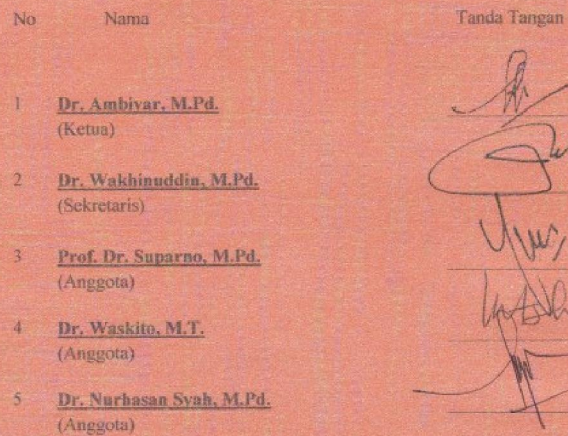 No Nama Tanda Tangan
1 Dr. Ambiyar, M.Pd.
(Ketua)
2 Dr. Wakhinuddin, M.Pd.
(Sekretaris)
3 Prof. Dr. Suparno, M.Pd.
(Anggota)
4 Dr. Waskito, M.T.
(Anggota)
5 Dr. Nurhasan Syah, M.Pd.
(Anggota)